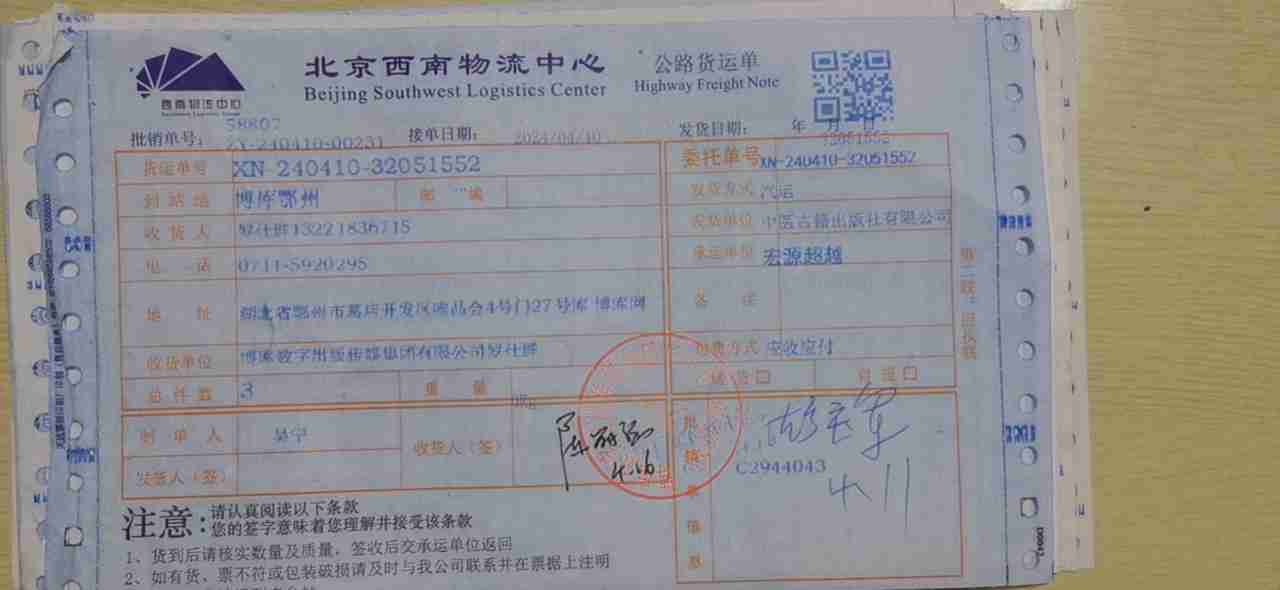 北京西南物流中心
Beijing Southwest Logistics Center
公路货运单
Highway Freight Note
西南物流中心
58807
批销单号: ZX-240410-00231 接单日期: 2024/04/10 发货日期: 年 月 日
32051552
货运单号 XN-240410-32051552 委托单号 XN-240410-32051552
到站地 博库鄂州 邮 编 发货方式 汽运
收货人 罗仕群13221836715 发货单位 中医古籍出版社有限公司
电话 0711-5920295 承运单位 宏源超越
地址 湖北省鄂州市葛店开发区唯品会4号门27号库 博库网 备注
收货单位 博库数字出版传媒集团有限公司罗仕群 付费方式 应收应付
总件数 3 重量 送货口 自提口
制单人 吴宁 收货人(签)
4.16
发货人(签)
C2944043
4.11
注意: 请认真阅读以下条款
您的签字意味着您理解并接受该条款
1、货到后请核实数量及质量,签收后交承运单位返回
2、如有货、票不符或包装破损请及时与我公司联系并在票据上注明
第二联:回执联